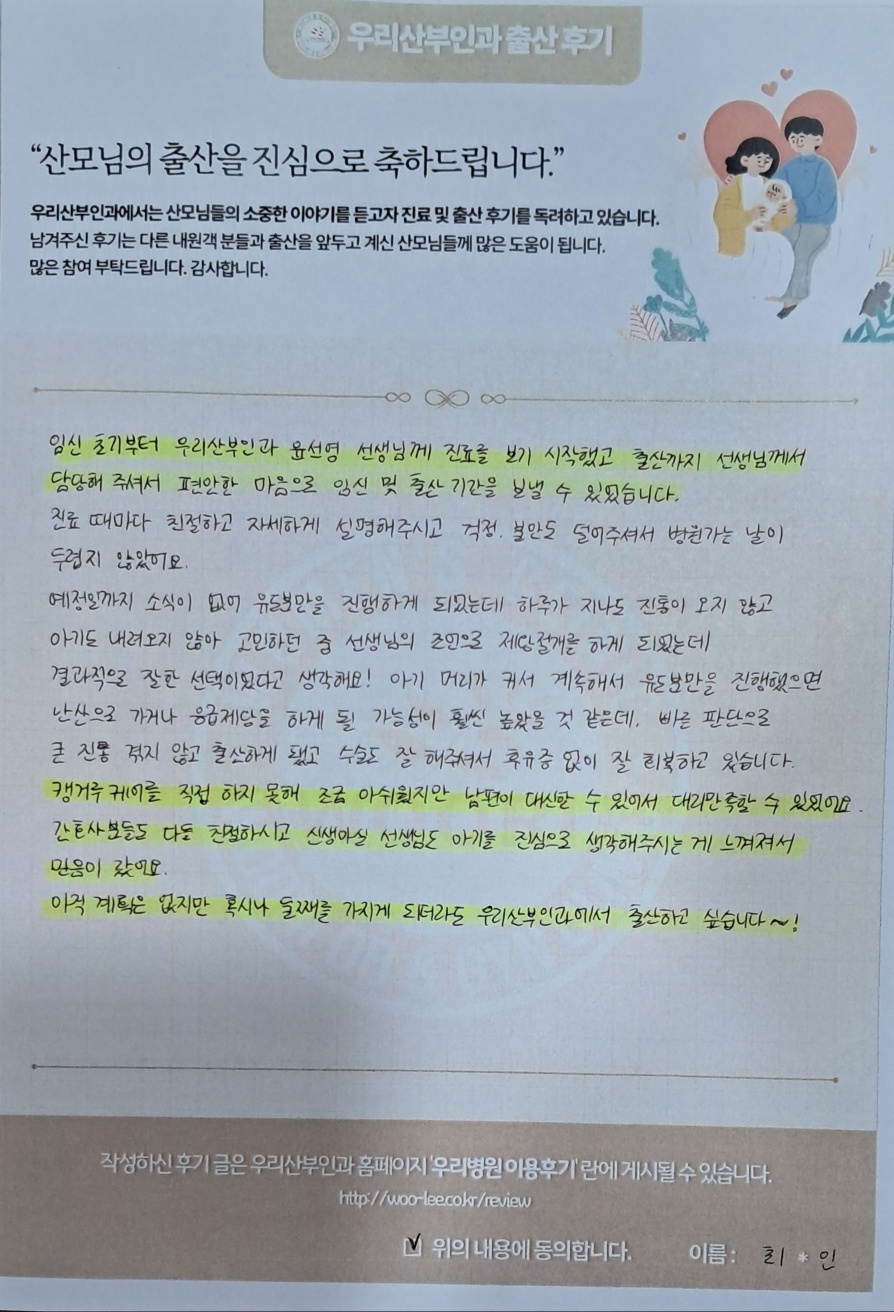 우리산부인과 출산 후기
“산모님의 출산을 진심으로 축하드립니다.”
우리산부인과에서는 산모님들의 소중한 이야기를 듣고자 진료 및 출산 후기를 독려하고 있습니다.
남겨주신 후기는 다른 내원객 분들과 출산을 앞두고 계신 산모님들께 많은 도움이 됩니다.
많은 참여 부탁드립니다. 감사합니다.
임신 초기부터 우리산부인과 윤선영 선생님께 진료를 보기 시작했고 출산까지 선생님께서
담당해 주셔서 편안한 마음으로 임신 및 출산 기간을 보낼 수 있었습니다.
진료 때마다 친절하고 자세하게 설명해주시고 걱정. 불안도 덜어주셔서 병원가는 날이
두렵지 않았어요.
예정일까지 소식이 없어 유도분만을 진행하게 되었는데 하루가 지나도 진통이 오지 않고
아기도 내려오지 않아 고민하던 중 선생님의 조언으로 제왕절개를 하게 되었는데
결과적으로 잘한 선택이었다고 생각해요! 아기 머리가 커서 계속해서 유도분만을 진행했으면
난산으로 가거나 응급제왕을 하게 될 가능성이 훨씬 높았을 것 같은데, 빠른 판단으로
큰 진통 겪지 않고 출산하게 됐고 수술도 잘 해주셔서 후유증 없이 잘 회복하고 있습니다.
캥거루 케어를 직접 하지 못해 조금 아쉬웠지만 남편이 대신할 수 있어서 대리만족할 수 있었어요.
간호사분들도 다들 친절하시고 신생아실 선생님도 아기를 진심으로 생각해주시는 게 느껴져서
믿음이 갔어요.
아직 계획은 없지만 혹시나 둘째를 가지게 되더라도 우리산부인과에서 출산하고 싶습니다~!
작성하신 후기 글은 우리산부인과 홈페이지 '우리병원 이용후기' 란에 게시될 수 있습니다.
http://woo-lee.co.kr/review
위의 내용에 동의합니다. 이름 : 최 * 인